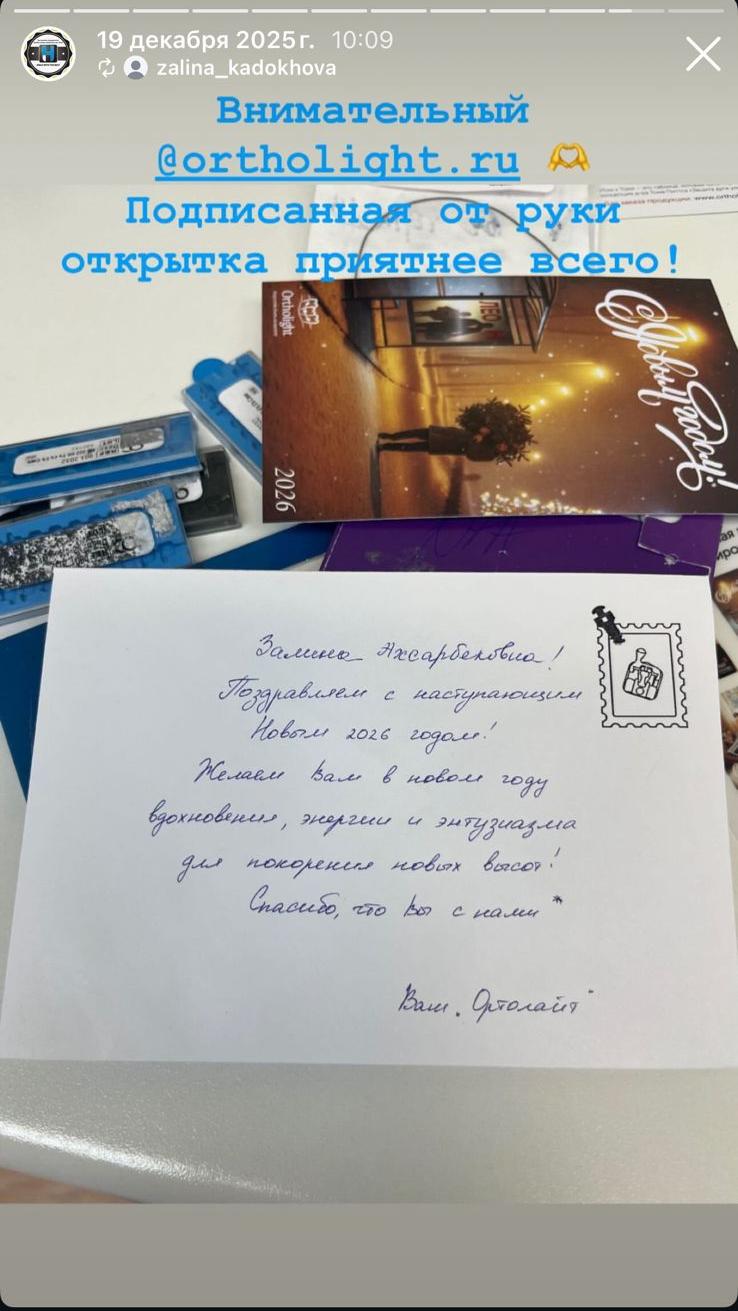 19 декабря 2025 г. 10:09
zalina_kadokhova
Внимательный
@ortholight.ru
Подписанная от руки
открытка приятнее всего!
www.ortho
Ortholight
ЛЕО
С Новым Годом!
2026
Залина Ахсарбековна!
Поздравляем с наступающим
Новым 2026 годом!
Желаем Вам в новом году
вдохновения, энергии и энтузиазма
для покорения новых высот!
Спасибо, что Вы с нами *
Ваш "Ортолайт"